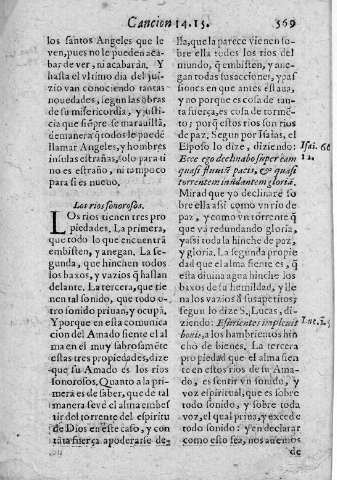 Cancion 14.15.
569
los santos Angeles que le
ven, pues no le pueden aca
bar de ver, ni acabarán. Y
hasta el vltimo dia del jui-
zio van conociendo tantas
nouedades, segun las obras
de su misericordia, y justi
cia que siẽpre se marauillã,
de manera q̃ todos le puedẽ
llamar Angeles, y hombres
insulas estrañas, solo para ti
no es estraño, ni tampoco
para si es nueuo.
Los rios sonorosos.
LOs rios tienen tres pro
piedades. La primera,
que todo lo que encuentrã
embisten, y anegan. La se-
gunda, que hinchen todos
los baxos, y vazios q̃ hallan
delante. La tercera, que tie
nen tal sonido, que todo o-
tro sonido priuan, y ocupã.
Y porque en esta comunica
cion del Amado siente el al
ma en el muy sabrosamẽte
estas tres propiedades, dize
que su Amado es los rios
sonorosos. Quanto a la pri
mera es de saber, que de tal
manera se vé el alma embes
tir del torrente del espiritu
de Dios en este caso, y con
tãta fuerça apoderarse de
lla, que la parece vienen so-
bre ella todos los rios del
mundo, q̃ embisten, y ane-
gan todas sus acciones, y pas
siones en que antes estaua, y
no porque es cosa de tan-
ta fuerça, es cosa de tormẽ-
to; por q̃ estos rios son rios
de paz, Segun por Isaias, el
Esposo lo dize, diziendo:
Isai. 66
Ecce ego declinabo super eam
12.
quasi fluuiũ pacis, & quasi
torrentem inũdantem gloriã.
Mirad que yo declinaré so
bre ella assi como vn rio de
paz, y como vn torrente q̃
que va redundando gloria,
y assi toda la hinche de paz,
y gloria. La segunda propie
dad que el alma siente es, q̃
esta diuina agua hinche los
baxos de su humildad, y lle
na los vazios d̃ sus apetitos;
segun lo dize S. Lucas, di-
ziendo: Esurientes impleuit
Luc. 1.
bonis, a los hambrientos hin
cho de bienes. La tercera
propiedad que el alma sien
te en estos rios de su Ama-
do, es sentir vn sonido, y
voz espiritual, que es sobre
todo sonido, y sobre toda
voz, el qual priua todo o-
tro sonido: y en declarar
como esto sea, nos auemos
de